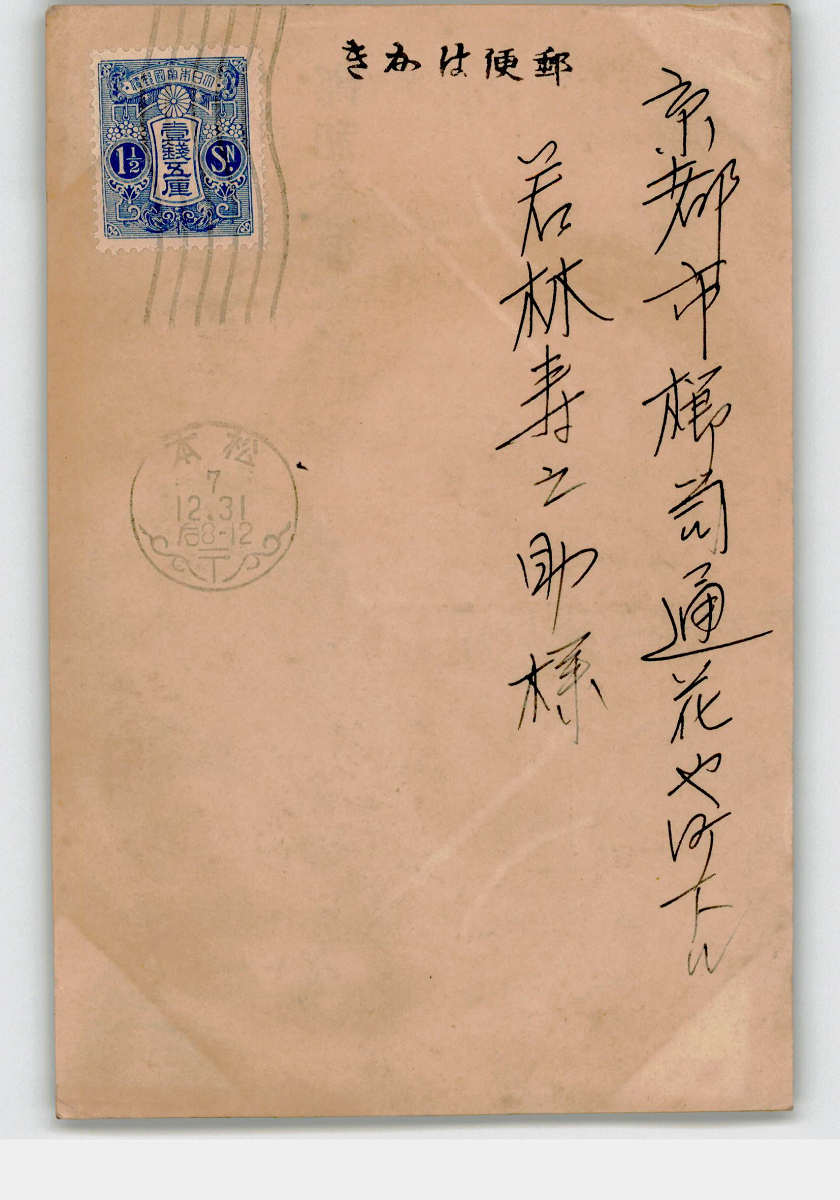 郵便はかき
京都市櫛笥通花や町下ル
若林寿之助様
大日本帝國郵便
壹錢五厘
1½ Sn.
松本
7
12.31
后8-12